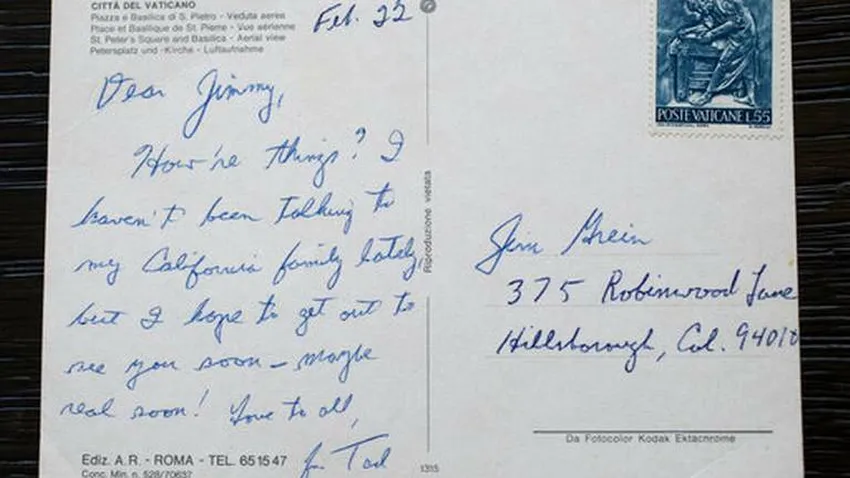 CITTÀ DEL VATICANO
Piazza e Basilica di S. Pietro - Veduta aerea
Place et Basilique de St. Pierre - Vue aérienne
St. Peter's Square and Basilica - Aerial view
Petersplatz und -Kirche - Luftaufnahme
Feb. 22
Dear Jimmy,
How're things? I
haven't been talking to
my California family lately,
but I hope to get out to
see you soon – maybe
real soon! Love to all,
Tad
Ediz. A.R. - ROMA - TEL. 651547
Conc. Min. n. 528/70637
Riproduzione vietata
1315
POSTE VATICANE L.55
Jim Grein
375 Robinwood Lane
Hillsborough, Cal. 94010
Da Fotocolor Kodak Ektachrome